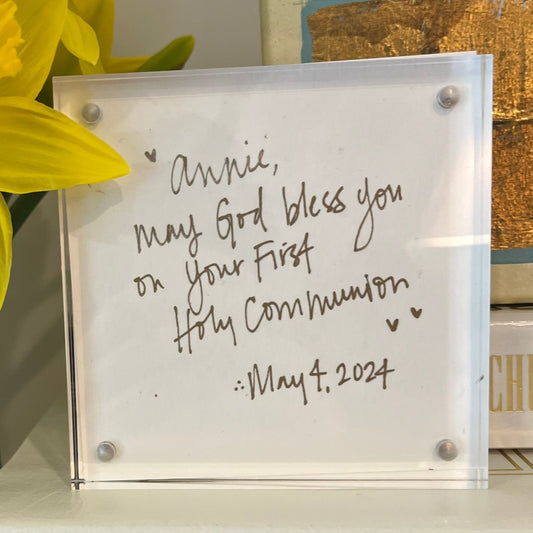 Annie,
May God bless you
on your First
Holy Communion
May 4, 2024
CH